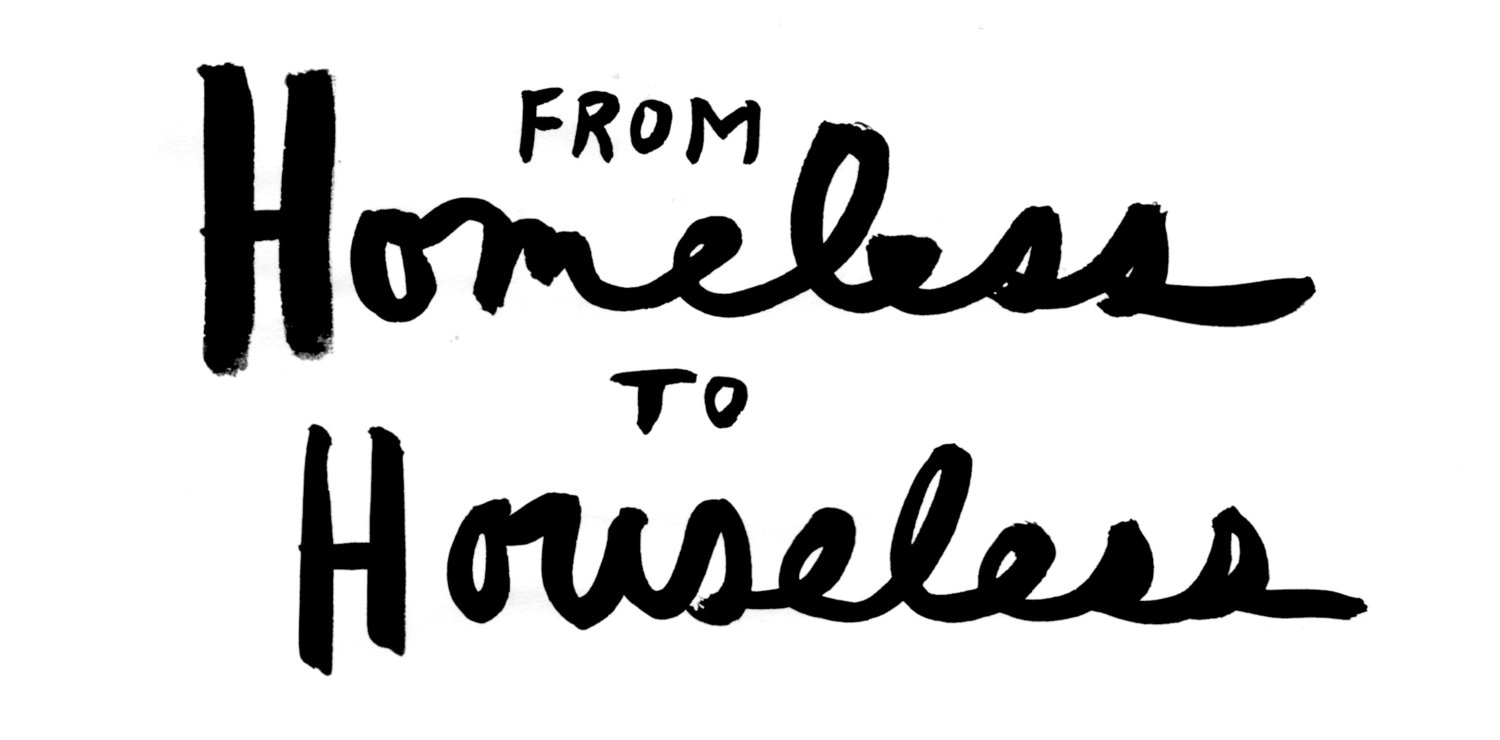 FROM
Homeless
TO
Houseless